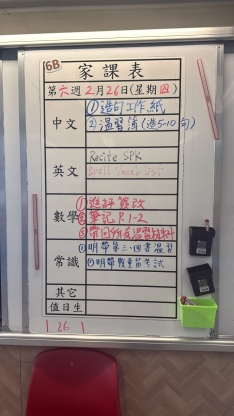 6B
家課表
第六週2月26日(星期四)
中文
①造句工作紙
②温習簿(造5-10句)
英文
Recite SPK
Spell Vocab List
數學
①進評簽改
②筆記P.1-2
③帶回所有温習材料
常識
①明帶第三、四書温習
②明帶
其它
值日生
1 26 1